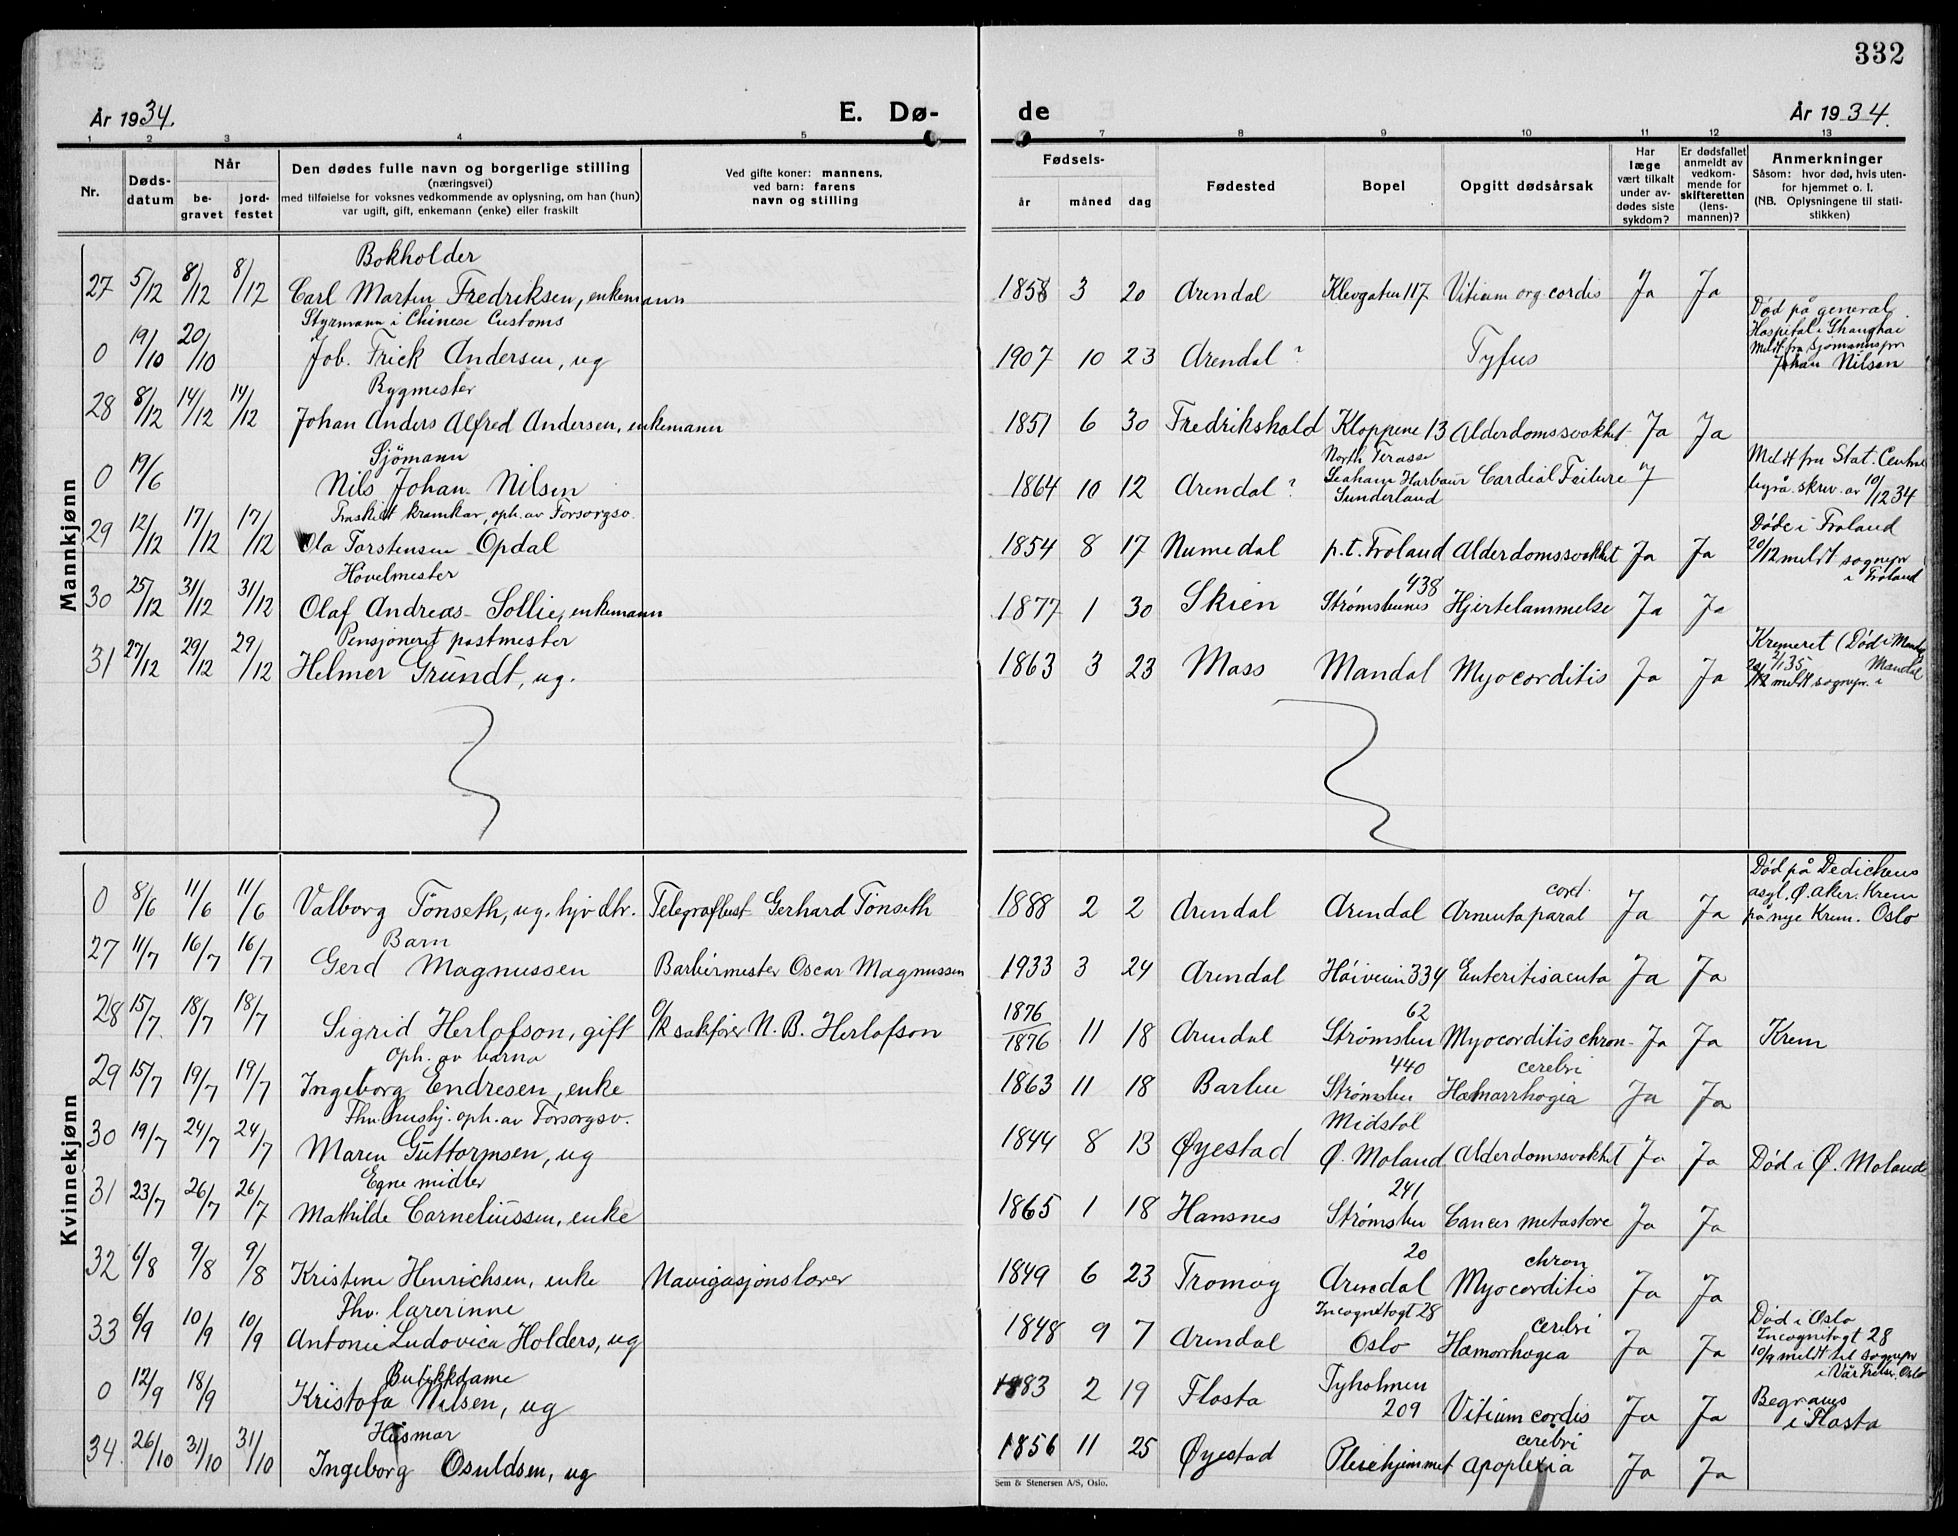 332
År 1934.
E. Dø-
de
År 1934.
1 2 3 4 5 7 8 9 10 11 12 13
Nr.
Døds-
datum
Når
be-
gravet
jord-
festet
Den dødes fulle navn og borgerlige stilling
(næringsvei)
med tilføielse for voksnes vedkommende av oplysning, om han (hun)
var ugift, gift, enkemann (enke) eller fraskilt
Ved gifte koner: mannens,
ved barn: farens
navn og stilling
Fødsels-
år måned dag
Fødested
Bopel
Opgitt dødsårsak
Har
læge
vært tilkalt
under av-
dødes siste
sykdom?
Er dødsfallet
anmeldt av
vedkom-
mende for
skifteretten
(lens-
mannen)?
Anmerkninger
Såsom: hvor død, hvis uten-
for hjemmet o. l.
(NB. Oplysningene til stati-
stikken)
Mannkjønn
Bokholder
27 5/12 8/12 8/12 Carl Martin Fredriksen, enkemann 1858 3 20 Arendal Klevgaten 117 Vitium org cordis Ja Ja
Styrmann i Chinese Customs
0 19/10 20/10 Joh. Frick Andersen, ug 1907 10 23 Arendal ? Tyfus
Død på general
Hospital i Shanghai
Meldt fra Sjømannspr
Johan Nilsen
Bygmester
28 8/12 14/12 14/12 Johan Anders Alfred Andersen, enkemann 1851 6 30 Fredrikshald Kloppene 13 Alderdomssvakhet Ja Ja
Sjömann
0 19/6 Nils Johan Nilsen 1864 10 12 Arendal ?
North Terasse
Seaham Harbour
Sunderland
Cardial Failure
Meldt fra Stat. Centra
byrå. skriv. av 10/12 34
Fraskilt kramkar, oph. av Forsorgsv.
29 12/12 17/12 17/12 Ola Torstensen Opdal 1854 8 17 Numedal p.t. Froland Alderdomssvakhet Ja Ja
Døde i Froland
20/12 meldt sognepr
i Froland
Høvelmester
30 25/12 31/12 31/12 Olaf Andreas Sollie, enkemann 1877 1 30 Skien Strømsbunes 438 Hjertelammelse Ja Ja
Pensjoneret postmester
31 27/12 29/12 29/12 Helmer Grundt, ug. 1863 3 23 Moss Mandal Myocorditis Ja Ja
Kremeret (Død i
Mandal
meldt sognepr. i
Kvinnekjønn
0 8/6 11/6 11/6 Valborg Tönseth, ug. hjv dtr. Telegrafbest Gerhard Tönseth 1888 2 2 Arendal Arendal cord. Ja Ja
Død på Dedichens
asyl. Ø. Aker. Krem
på nye Krem. Oslo
Barn
27 11/7 16/7 16/7 Gerd Magnussen Barbérmester Oscar Magnussen 1933 3 24 Arendal Höiveien 334 Enteritis acuta Ja Ja
28 15/7 18/7 18/7 Sigrid Herlofson, gift O/R sakfører N. B. Herlofson 1876/1876 11 18 Arendal Strømsbu 62 Myocorditis chron. Ja Ja Krem
Oph. av barna
29 15/7 19/7 19/7 Ingeborg Endresen, enke 1863 11 18 Barbu Strømsbu 440 Hæmorrhogia cerebri Ja Ja
Fhv. hushj. oph. av Forsorgsv.
30 19/7 24/7 24/7 Maren Guttormsen, ug 1844 8 13 Øyestad Midstol
Ø. Moland Alderdomssvakhet Ja Ja Død i Ø. Moland
Egne midler
31 23/7 26/7 26/7 Mathilde Corneliussen, enke 1865 1 18 Hansnes Strømsbu 241 Cancer metastore Ja Ja
32 6/8 9/8 9/8 Kristene Henrichsen, enke Navigasjonslærer 1849 6 23 Tromøy Arendal 20 Myocorditis chron Ja Ja
Fhv. lærerinne
33 6/9 10/9 10/9 Antonie Ludovica Holders, ug 1848 9 7 Arendal Incognitogt 28
Oslo Hæmorrhogia cerebri Ja Ja
Død i Oslo
Incognitogt 28
10/9 meldt til sognepr
i Vår Frelser. Oslo
Butikkdame
0 12/9 18/9 Kristofa Nilsen, ug 1883 2 19 Flosta Tyholmen
209 Vitium cordis Ja Ja
Begraves
i Flosta
Hismar
34 26/10 31/10 31/10 Ingeborg Osuldsen, ug 1856 11 25 Øyestad Pleiehjemmet apoplexia cerebri Ja Ja
Sem & Stenersen A/S, Oslo.